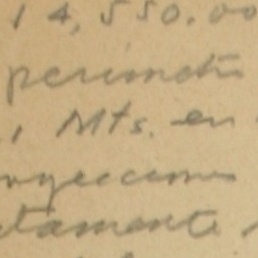 14,550.00
perimetro
, Mts. en
oyeccion
tamente